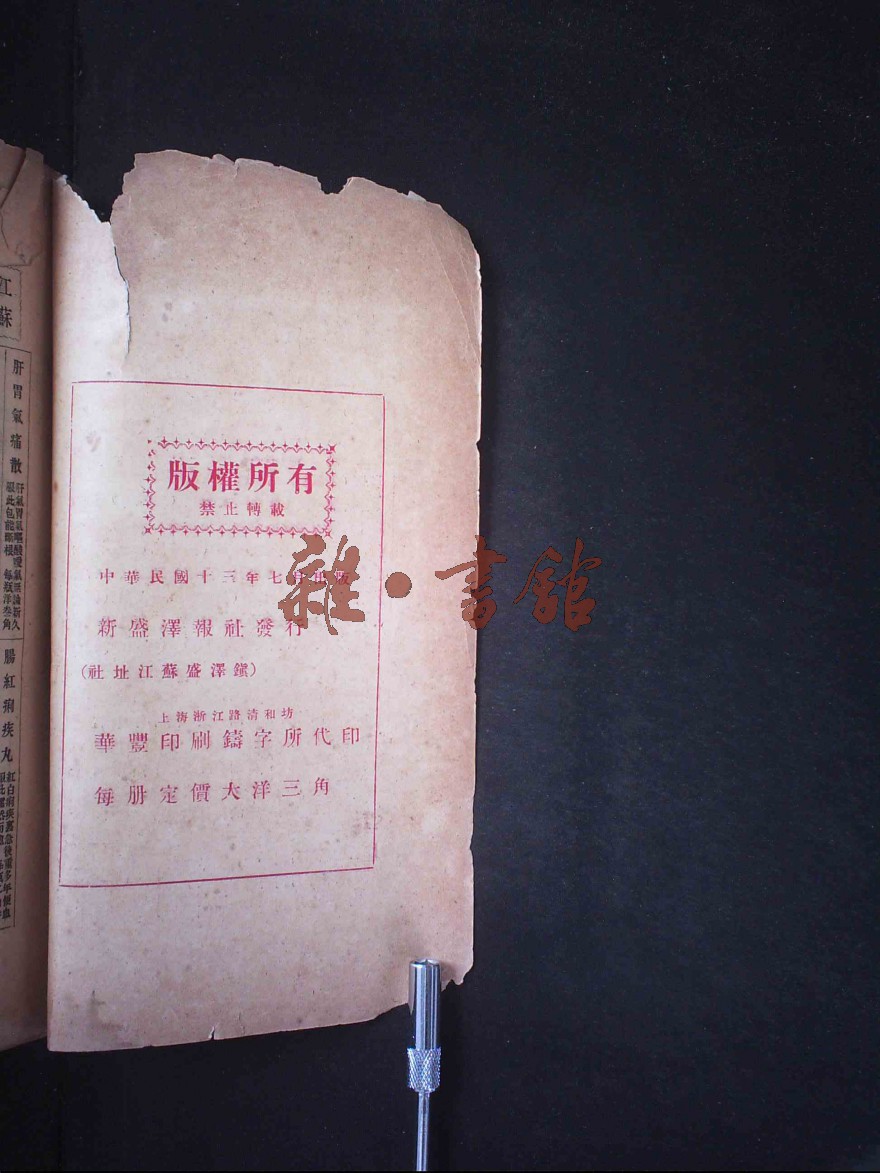 版權所有
禁止轉載
中華民國十三年七月出版
新盛澤報社發行
(社址江蘇盛澤鎭)
上海浙江路清和坊
華豐印刷鑄字所代印
每册定價大洋三角
雜·書館
江蘇
肝胃氣痛散
腸紅痢疾丸